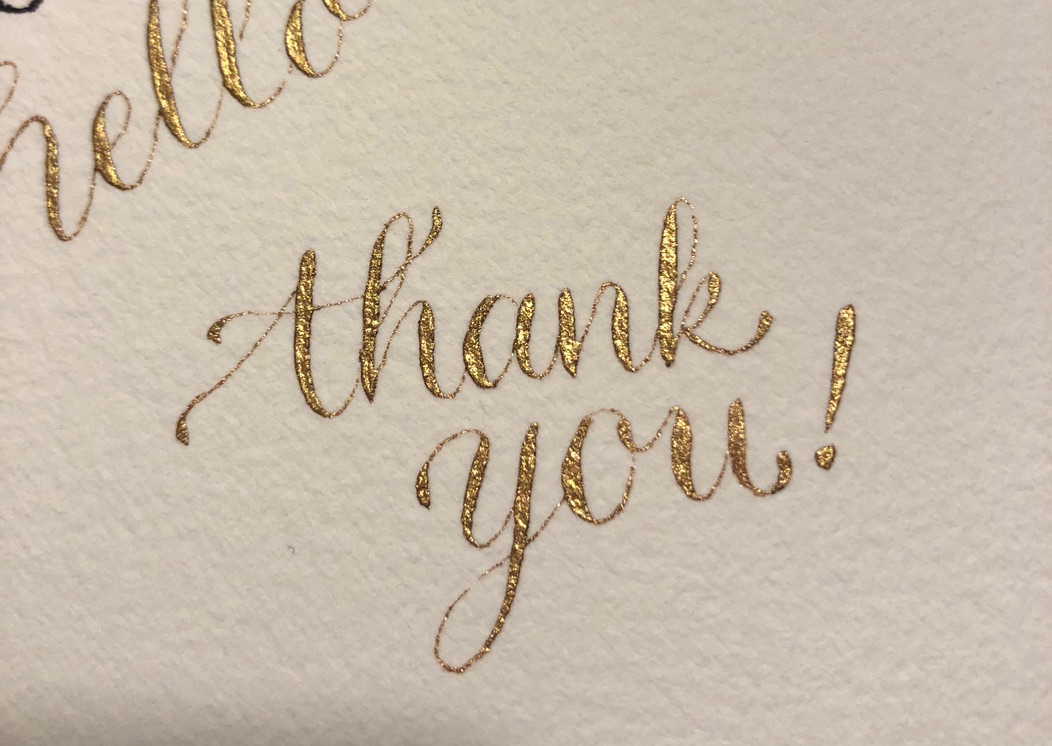 hello
thank
you!